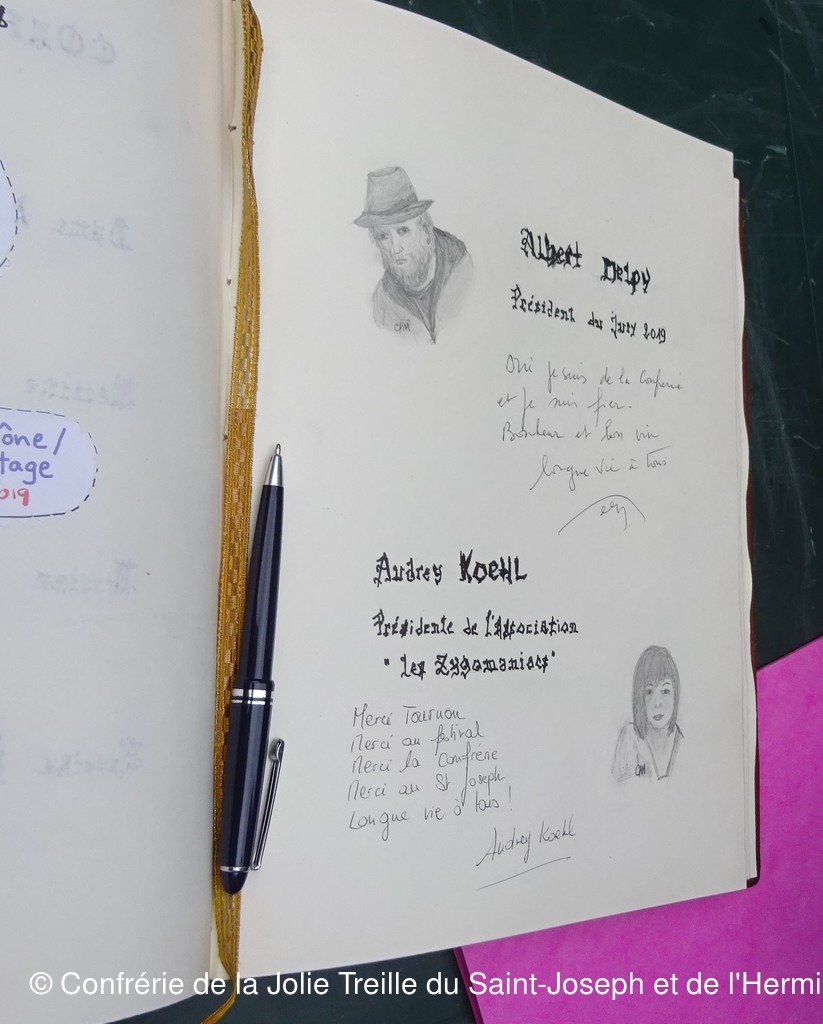 ône/
tage
2019
CAM
Albert Delpy
Président du Jury 2019
Oui je suis de la Confrérie
et je suis fier.
Bonheur et bon vin
longue vie à tous
Audrey KOEHL
Présidente de l'Association
"Les Zygomaniacs"
Merci Tournon
Merci au festival
Merci la Confrérie
Merci au St Joseph
Longue vie à tous !
CAM
Audrey Koehl
© Confrérie de la Jolie Treille du Saint-Joseph et de l'Hermi